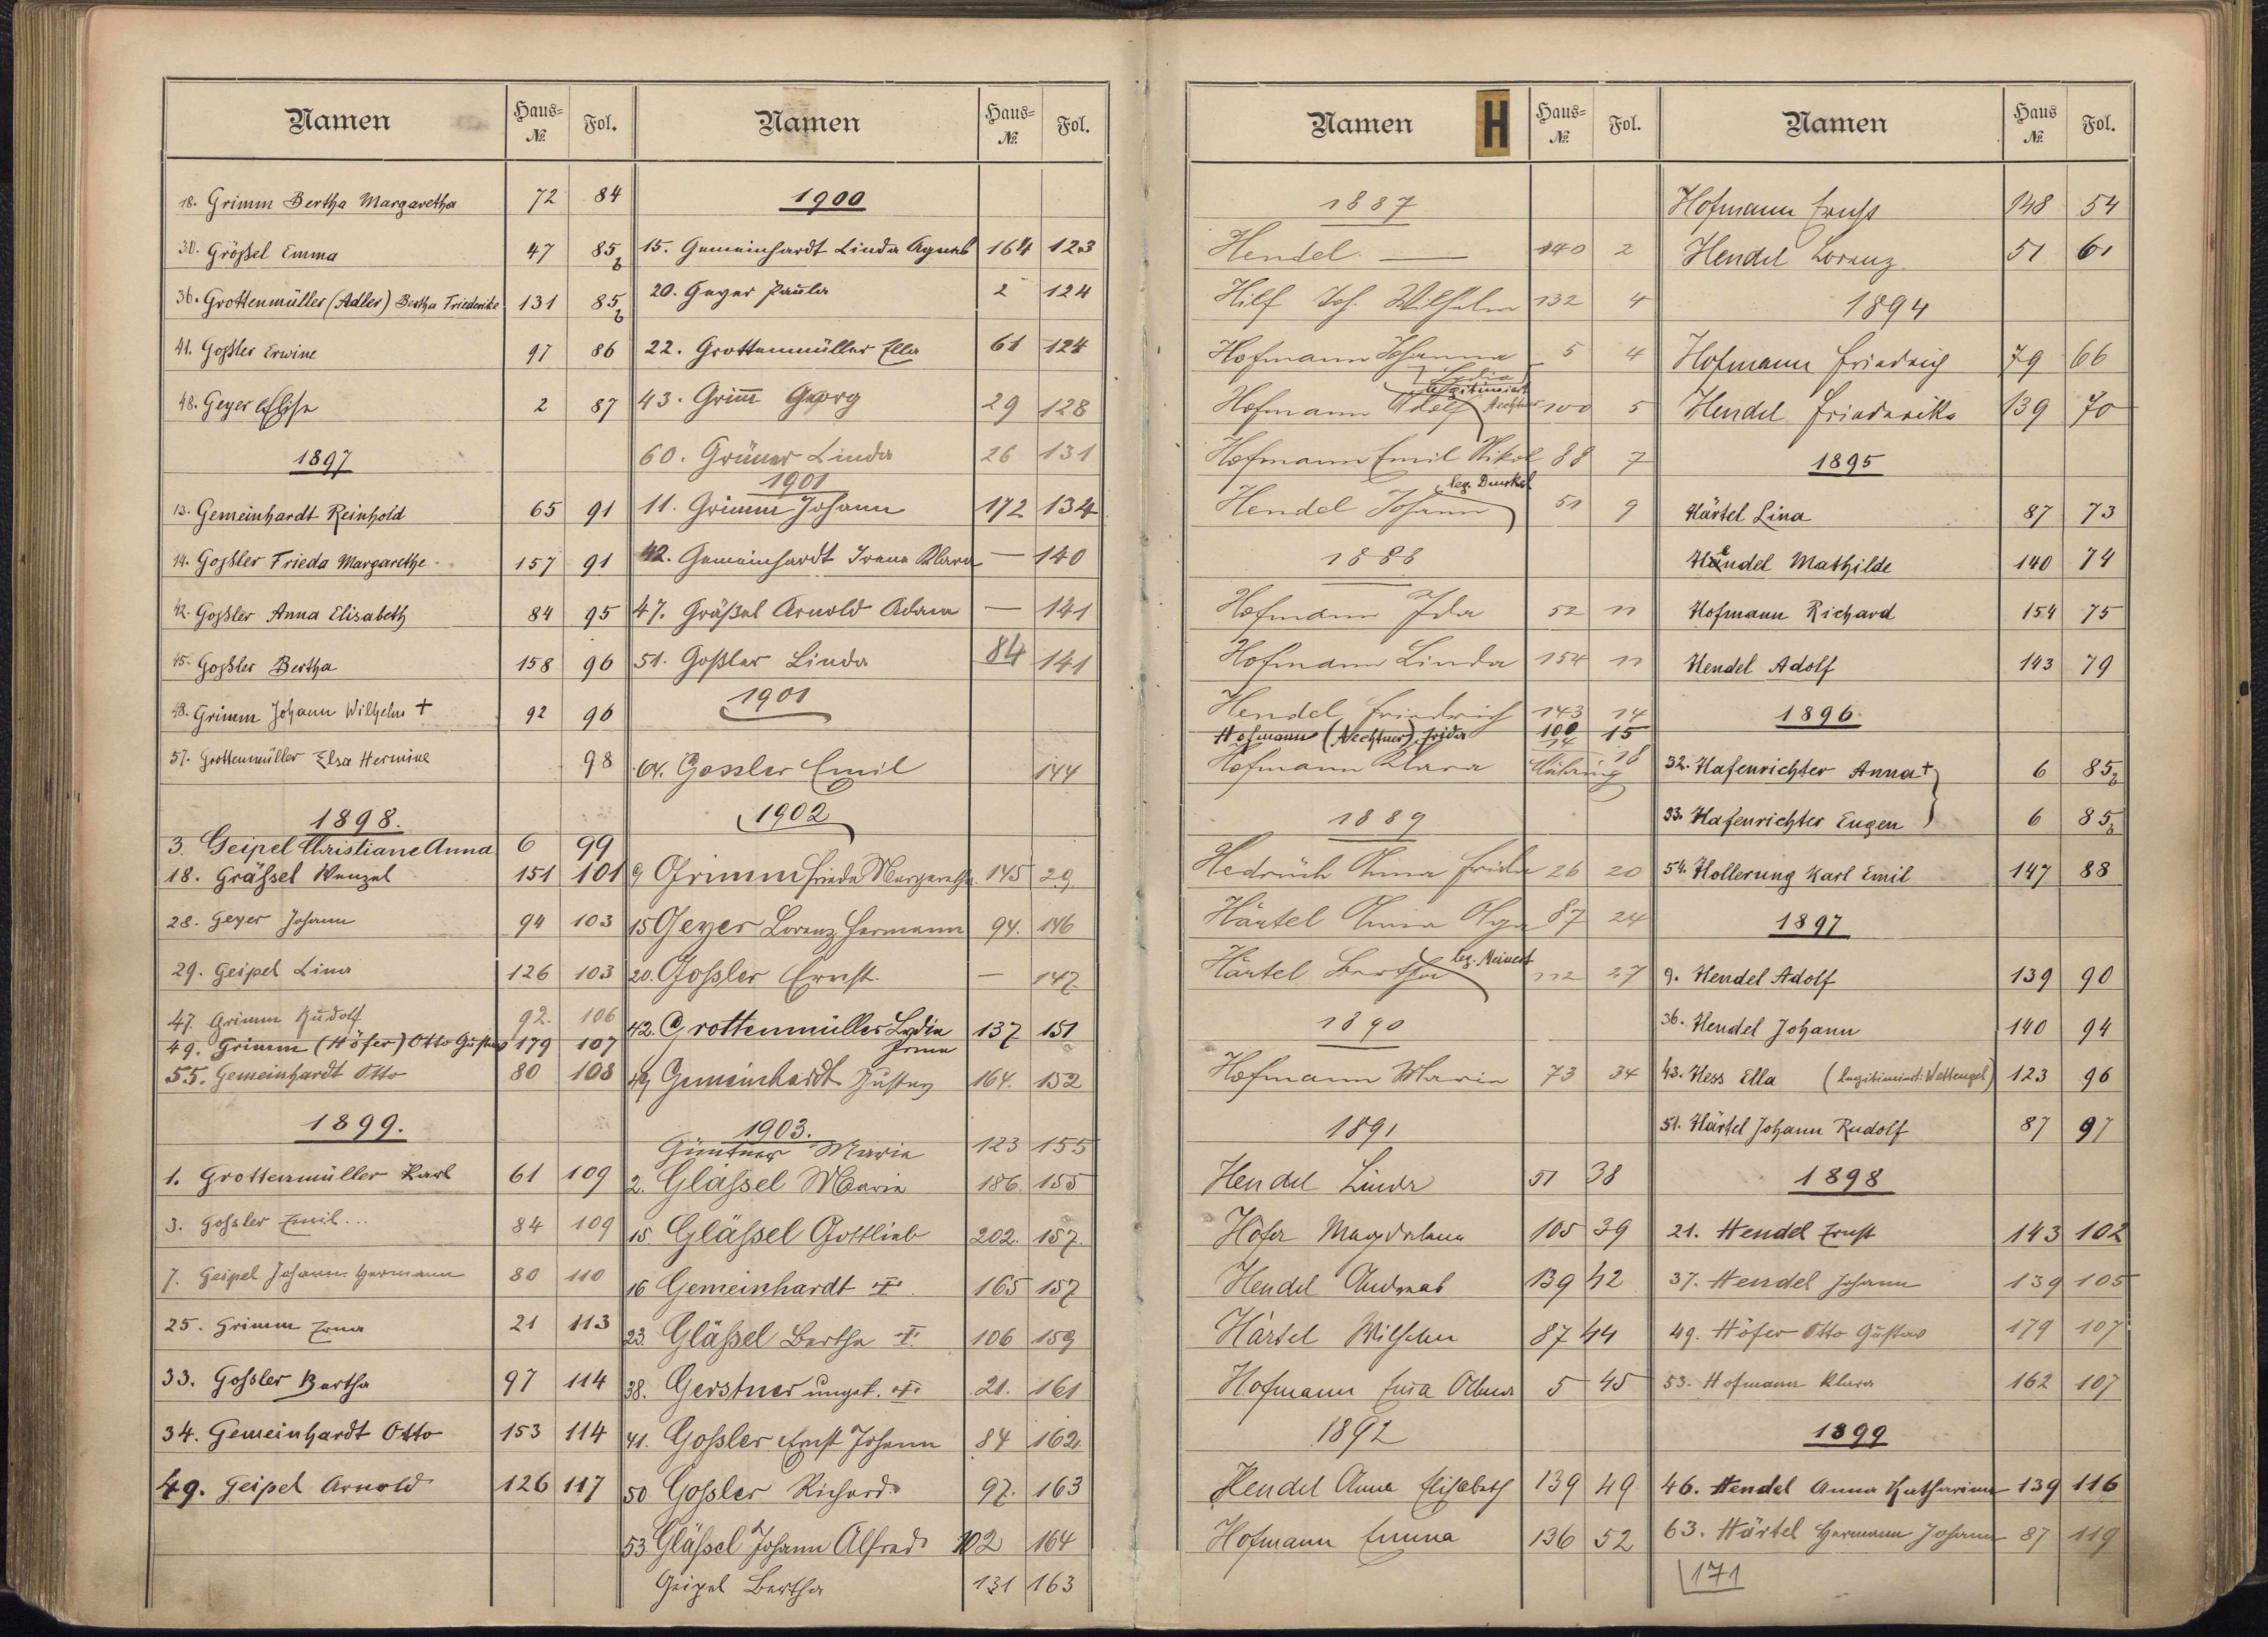 Namen Haus-№ Fol.
18. Grimm Bertha Margaretha 72 84
30. Größel Emma 47 85b
36. Grottenmüller (Adler) Bertha Friederike 131 85b
41. Goßler Erwine 97 86
48. Geyer Elise 2 87
1897
13. Gemeinhardt Reinhold 65 91
14. Goßler Frieda Margarethe 157 91
42. Goßler Anna Elisabeth 84 95
45. Goßler Bertha 158 96
48. Grimm Johann Wilhelm + 92 96
57. Grottenmüller Elsa Hermine 98
1898.
3. Geipel Christiane Anna 6 99
18. Gräßel Wenzel 151 101
28. Geyer Johann 94 103
29. Geipel Lina 126 103
47. Grimm Rudolf 92. 106
49. Grimm (Höfer) Otto Gustav 179 107
55. Gemeinhardt Otto 80 108
1899.
1. Grottenmüller Karl 61 109
3. Goßler Emil... 84 109
7. Geipel Johann Hermann 80 110
25. Grimm Erna 21 113
33. Goßler Bertha 97 114
34. Gemeinhardt Otto 153 114
49. Geipel Arnold 126 117
Namen Haus-№ Fol.
1900
15. Gemeinhardt Linda Agnes 164 123
20. Geyer Paula 2 124
22. Grottenmüller Ella 61 124
43. Grim̅ Georg 29 128
60. Grüner Linda 26 131
1901
11. Grimm Johann 172 134
42. Gemeinhardt Irene Klara — 140
47. Gräßel Arnold Adam — 141
51. Goßler Linda 84 141
1901
64. Gossler Emil 144
1902
9 Grimm Frieda Margaretha 145 29
15 Geyer Lorenz Hermann 94. 146
20. Goßler Ernst. — 147
42. Grottenmüller Lydia 137 151
Irma
49 Gemeinhardt Gustav 164. 152
1903.
Güntner Maria 123 155
2. Gläßel Maria 186. 155
15. Gläßel Gottlieb 202. 157.
16 Gemeinhardt + 165 157
23. Gläßel Bertha + 106 159
38. Gerstner unget. + 21. 161
41. Goßler Ernst Johann 84 162.
50 Goßler Richard 97. 163
53. Gläßel Johann Alfred 102 164
Geipel Bertha 131 163
Namen H Haus-№ Fol.
1887
Hendel — 140 2
Hilf Joh. Wilhelm 132 4
Hofmann Johanna 5 4
Lydia
legitimiert
Hofmann Adolf Aechtner 100 5
Hofmann Emil Nikol 88 7
leg. Dunkel
Hendel Johann 51 9
1888
Hofmann Ida 52 11
Hofmann Linda 154 11
Hendel Friedrich 143 14
Hofmann (Aechtner) Frida 100 15
Hofmann Klara 14 Mähring 18
1889
Hedrich Anna Frida 26 20
Härtel Anna Olga 87 24
leg. Neinert
Härtel Bertha 112 27
1890
Hofmann Maria 73 34
1891
Hendel Linda 51 38
Höfer Magdalena 105 39
Hendel Andreas 139 42
Härtel Wilhelm 87 44
Hofmann Erna Alma 5 45
1892
Hendel Anna Elisabeth 139 49
Hofmann Emma 136 52
Namen Haus № Fol.
Hofmann Ernst 148 54
Hendel Lorenz 51 61
1894
Hofmann Friedrich 79 66
Hendel Friederika 139 70
1895
Härtel Lina 87 73
Hendel Mathilde 140 74
Hofmann Richard 154 75
Hendel Adolf 143 79
1896.
32. Hafenrichter Anna + 6 85b
33. Hafenrichter Eugen 6 85b
54. Hollerung Karl Emil 147 88
1897
9. Hendel Adolf 139 90
36. Hendel Johann 140 94
43. Hess Ella (legitimiert: Wettengel) 123 96
51. Härtel Johann Rudolf 87 97
1898
21. Hendel Ernst 143 102
37. Hendel Johann 139 105
49. Höfer Otto Gustav 179 107
53. Hofmann Klara 162 107
1899
46. Hendel Anna Katharina 139 116
63. Härtel Hermann Johann 87 119
171